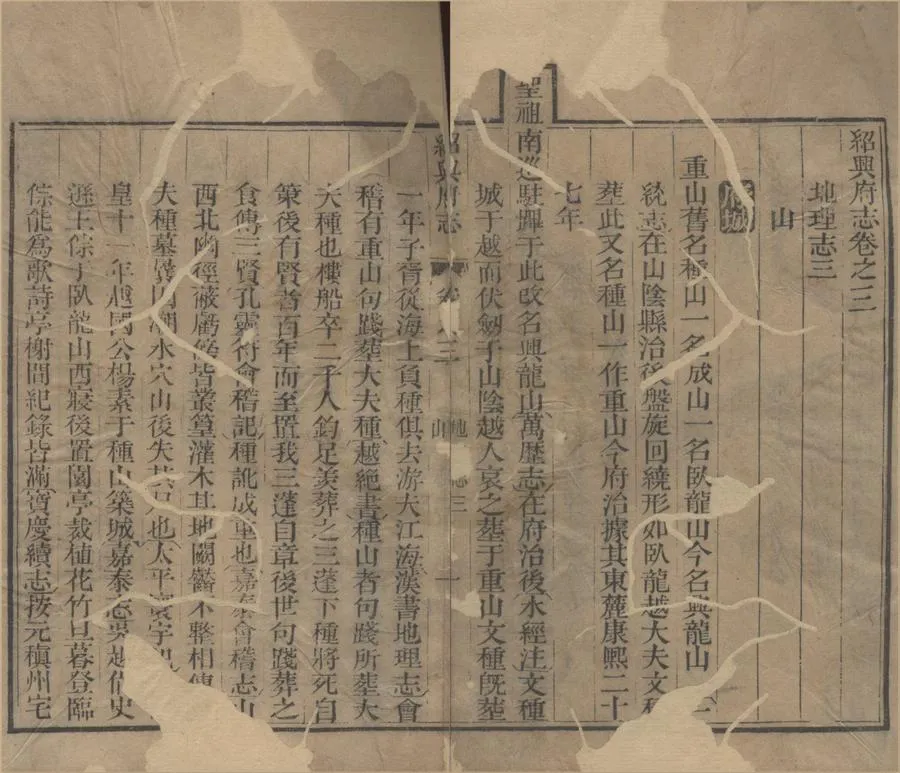 紹興府志卷之三
地理志三
山
府城
重山舊名種山一名成山一名臥龍山今名興龍山一
統志在山陰縣治後盤旋回繞形如臥龍越大夫文種
塟此又名種山一作重山今府治據其東麓康熙二十
七年
聖祖南巡駐蹕于此改名興龍山萬歷志在府治後水經注文種
城于越而伏劒于山陰越人哀之塟于重山文種旣塟
紹興府志 卷之三 地理志三 山 一
一年子胥從海上負種俱去游大江海漢書地理志會
稽有重山句踐塟大夫種越絶書種山者句踐所塟大
夫種也樓船卒二千人鈞足羨葬之三蓬下種將死自
策後有賢者百年而至置我三蓬自章後世句踐葬之
食傳三賢孔靈符會稽記種訛成重也嘉泰會稽志山
西北幽徑蔽虧皆叢篁灌木其地闕齾不整相傳
夫種墓 因潮水穴山後失其尸也太平寰宇記
皇十一年越國公楊素于種山築城嘉泰志吳越僭史
遜王倧于臥龍山西寢後置園亭裁植花竹旦暮登臨
倧能爲歌詩亭榭間紀錄皆滿寶慶續志按元稹州宅